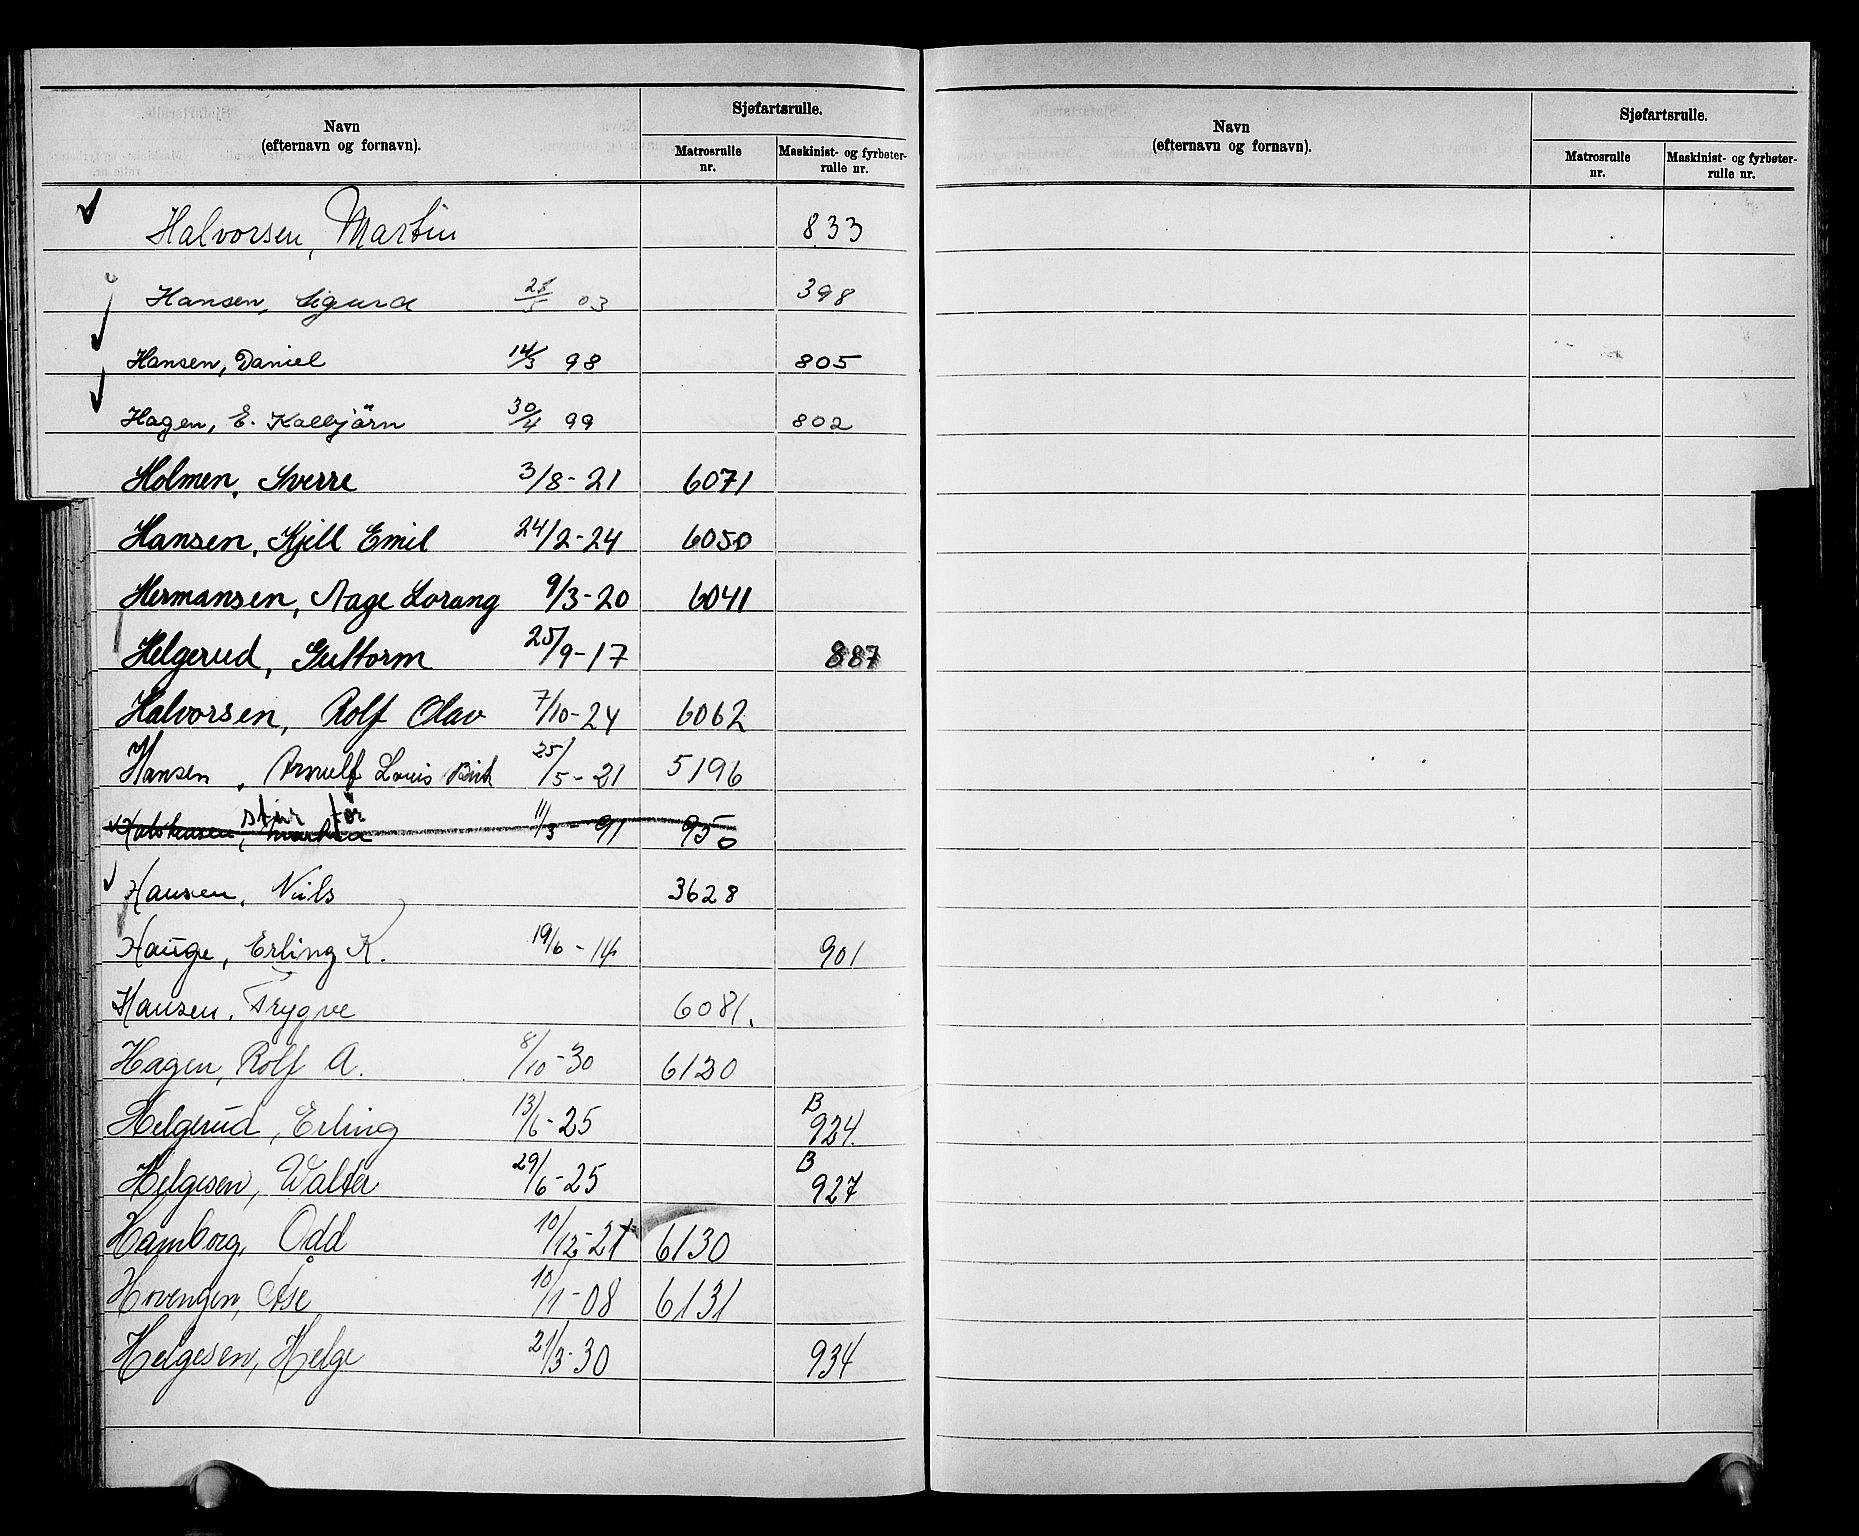 Navn
(efternavn og fornavn).
Sjøfartsrulle.
Matrosrulle nr.
Maskinist- og fyrbøter-rulle nr.
Halvorsen, Martin 833
Hansen, Sigurd 03 398
Hansen, Daniel 14/3 98 805
Hagen, E. Kolbjörn 30/4 99 802
Holmen, Sverre 3/8-21 6071
Hansen, Kjell Emil 24/2-24 6050
Hermansen, Aage Lorang 9/3-20 6041
Helgerud, Guttorm 25/9-17 887
Halvorsen, Rolf Olav 7/10-24 6062
Hansen, Arnulf Louis 25/5-21 5196
står før
11/3-91 950
Hansen, Nils 3628
Hauge, Erling K. 19/6-14 901
Hansen, Trygve 6081.
Hagen, Rolf A. 8/10-30 6120
Helgerud, Erling 13/6-25 B 924
Helgesen, Walter 29/6-25 B 927
Hamborg, Odd 10/12-21 6130
Hovengen, Åse 10/1-08 6131
Helgesen, Helge 21/3-30 934
Navn
(efternavn og fornavn).
Sjøfartsrulle.
Matrosrulle nr.
Maskinist- og fyrbøter-rulle nr.